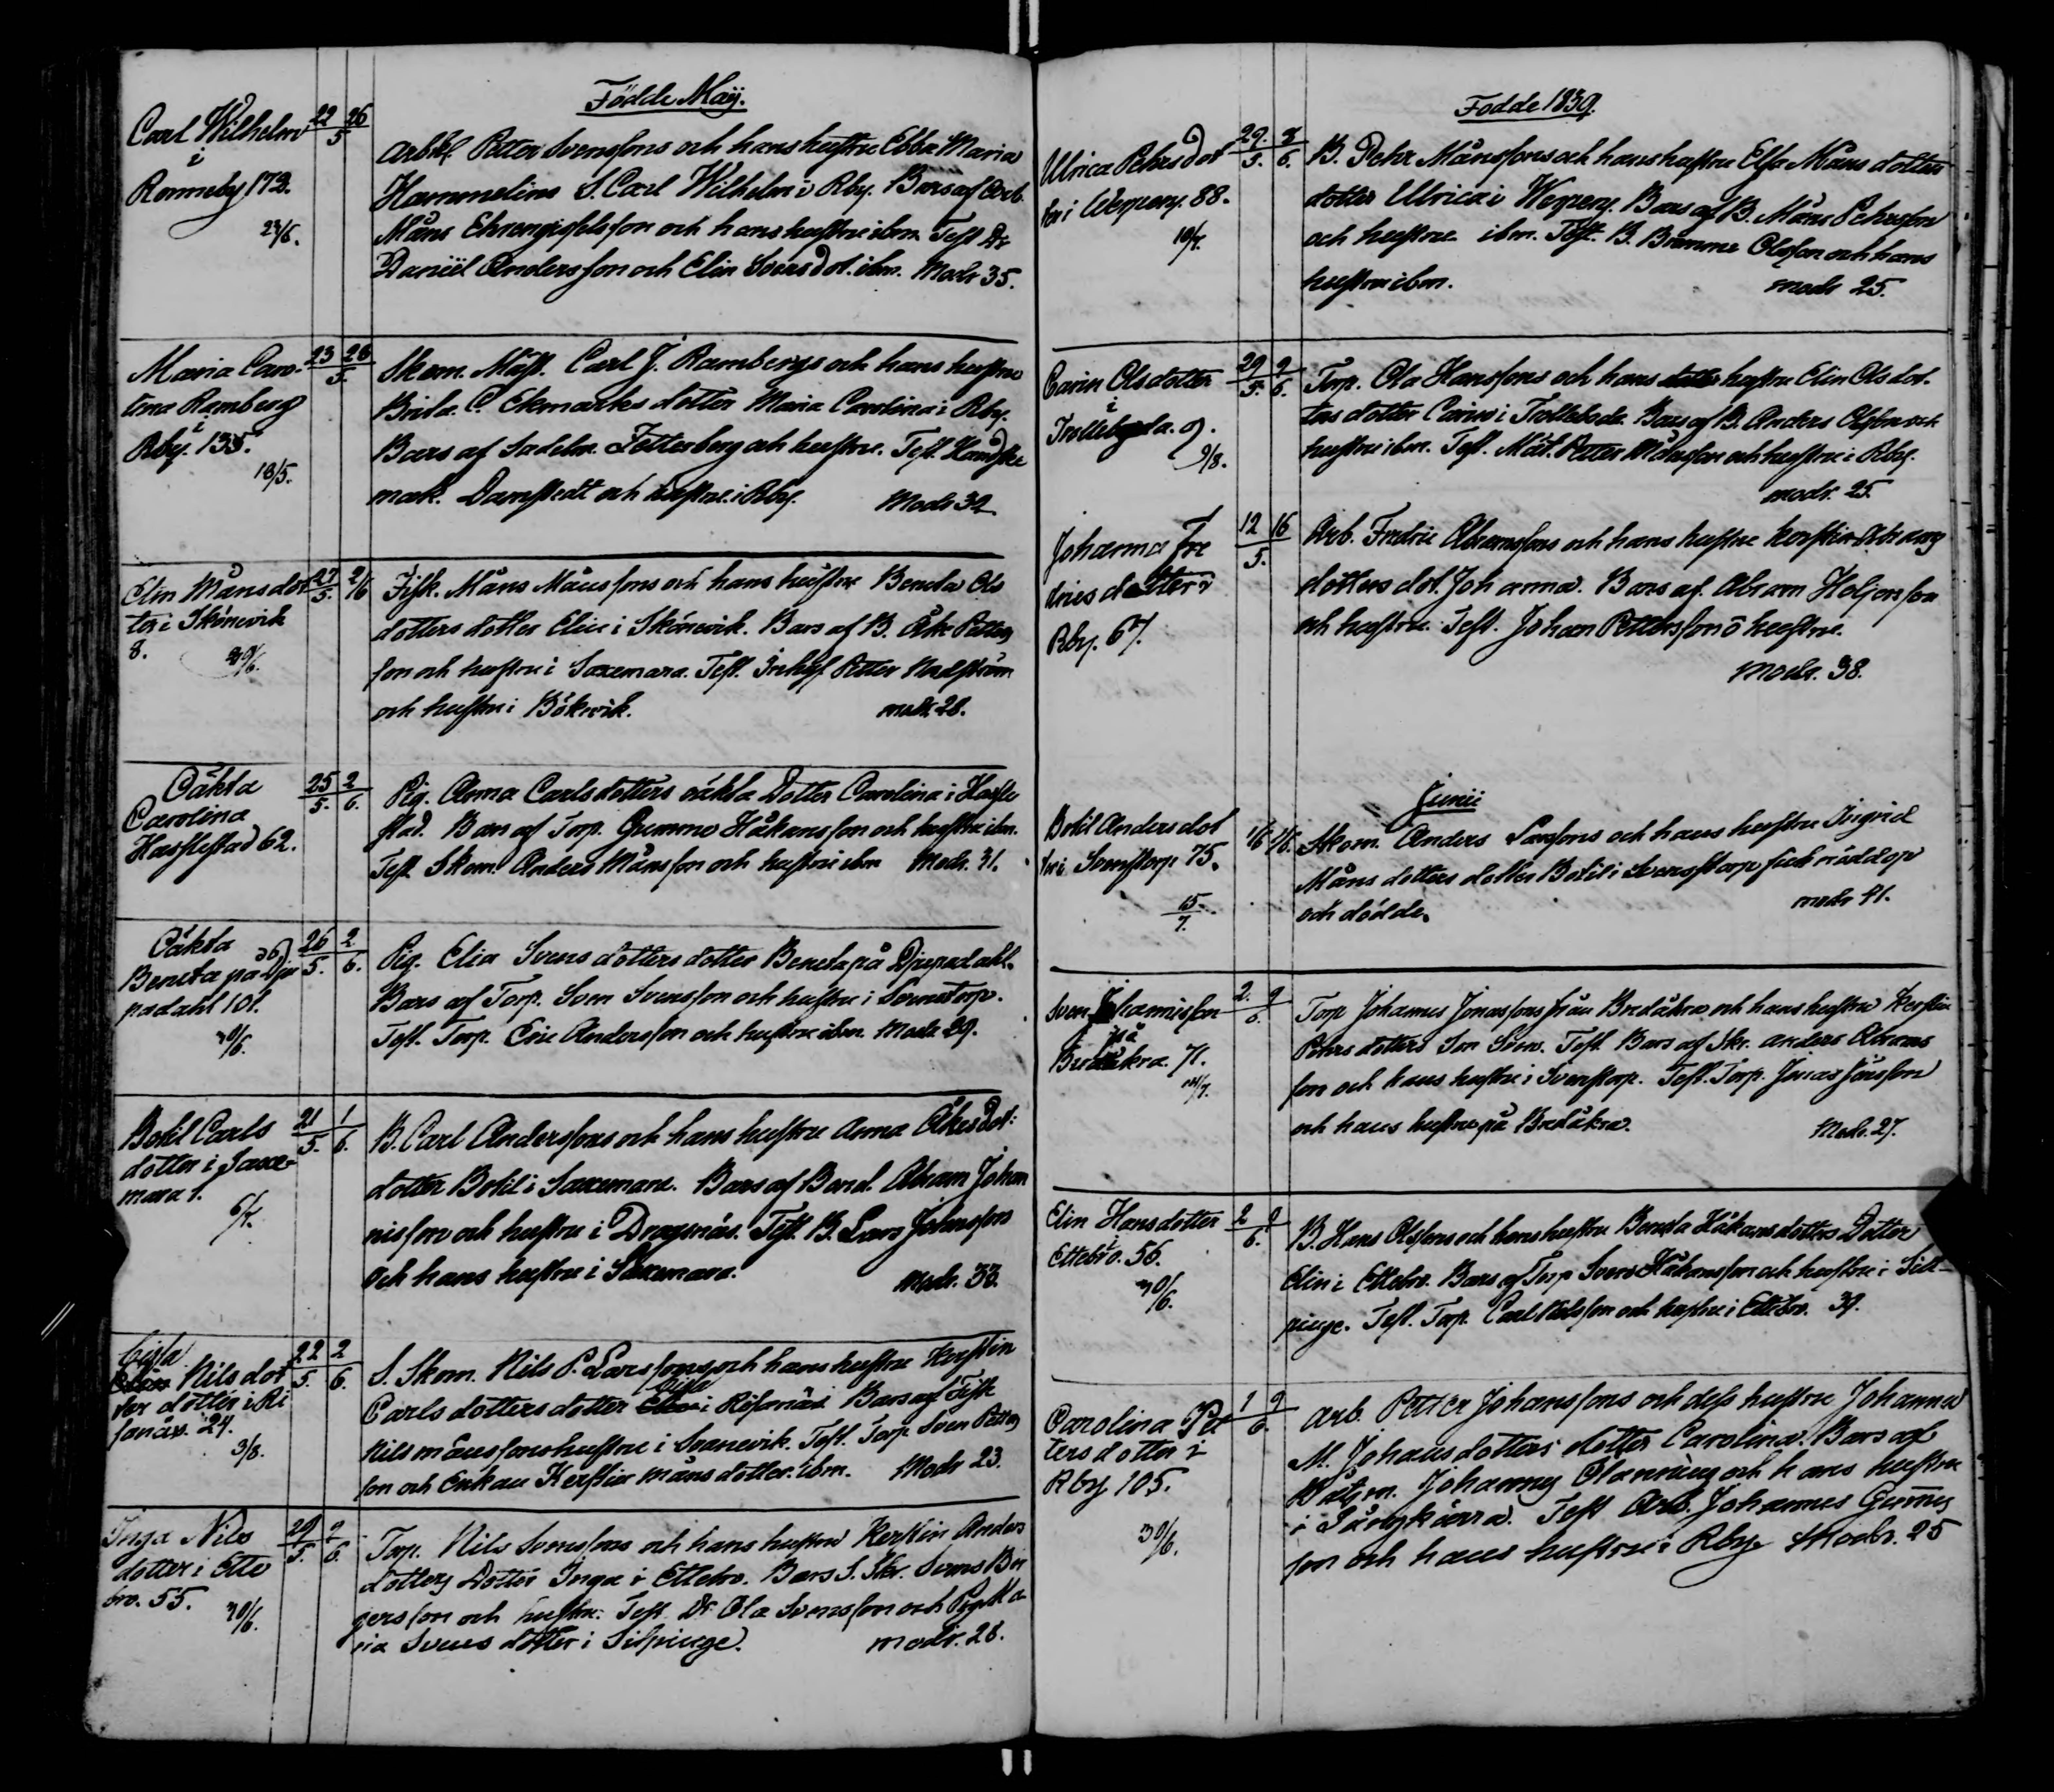 Födde Maij.
Carl Wilhelm
i
Ronneby 172.
22 26
5
Arbk. Petter Svenssons och hans hustru Ebba Maria
Hammelins S. Carl Wilhelm i Rby. Bars af Arb.
Måns Ehrengisleson och hans hustru ibm. Test Dr
Daniël Andersson och Elin Svensdot. ibm. Modr 35.
Maria Caro-
lina Ramberg
i
Rby. 135.
18/5.
23 28
5.
Skom. Mäst. Carl J. Rambergs och hans hustru
Brita C. Ekmarks dotter Maria Carolina i Rby.
Bars af Sadelm. Zetterberg och hustru. Test. Handsk
mak. Damstedt och hustru i Rby. Modr 32
Elin Månsdot
ter i Skönevik
8.
27 2/6
5.
Fisk. Måns Månssons och hans hustru Beneta Ols
dotters dotter Elin i Skönevik. Bars af B. Åke Petters
son och hustru i Saxemara. Test. Inhys. Petter
och hustru i Bökevik. modr. 28.
Oäkta
Carolina
Hasslestad 62.
25 2
5. 6.
Pig. Anna Carlsdotters oäkta Dotter Carolina i Hassle
stad. Bars af Torp. Gumme Håkansson och hustru ibm.
Test Skom. Anders Månsson och hustru ibm Modr. 31.
Oäkta
Beneta på Dju
padahl 101.
30/6.
26 2
5. 6.
Pig. Elin Svensdotters dotter Beneta på Djupadahl.
Bars af Torp. Sven Svensson och hustru i Svenstorp.
Test. Torp. Eric Andersson och hustru ibm. Modr 29.
Botil Carls
dotter i Saxe-
mara 1.
6/7.
21 1
5. 6.
B. Carl Anderssons och hans hustru Anna Åkesdot:
dotter Botil i Saxemara. Bars af Bond. Abram Johan
nisson och hustru i Dragsnäs. Test. B. Lars Johnssons
och hans hustru i Saxemara. Modr. 33.
Cisla
Nilsdot
ter dotter i Ri
sanäs. 24.
3/8.
22 2
5. 6.
S. Skom. Nils P. Larssons och hans hustru Kerstin
Cisla
Carls dotters dotter Elin i Risanäs Bars af Fisk
Nils Månssons hustru i Svanevik. Test. Torp. Sven Petters
son och Enkan Kerstin Måns dotter ibm. Modr 23.
Inga Nils
dotter i Ette
bro. 55.
30/6.
29 2
5. 6.
Torp. Nils Svenssons och hans hustru Kerstin Anders
dotters Dotter Inga i Ettebro. Bars S. Skr. Svens Bir
gersson och hustru. Test. Dr. Ola Svensson och Pig. Ma
ria Svens dotter i Silpinge. modr. 28.
Fodde 1839.
Ulrica Pehrsdot
ter i Wepeng. 88.
29
5. 6.
B. Pehr Månssons och hans hustru Elsa Månsdotters
dotter Ulrica i Bars af B. Måns Pehrsson
och hustru ibm. Test. B. Bromme Olsson och hans
hustru ibm. modr 25.
Carin Olsdotter
i
Trolleboda. 9.
9/8.
29 9
5. 6.
Torp. Ola Hanssons och hans dotter hustru Elin Olsdot-
ters dotter Carin i Trolleboda. Bars af B. Anders Olsson och
hustru ibm. Test. Måt. Petter Månsson och hustru i Rby.
modr. 25.
Johanna Fre
drics dotter i
Rby. 67.
12 16
5.
Arb. Fredric Abramssons och hans hustru Kerstin
dotters dot. Johanna. Bars af. Abram Holjersson
och hustru. Test. Johan Pettersson o hustru.
Modr. 38.
Junii
Botil Andersdot
ter i Svenstorp 75.
15
7.
1/6 1/6.
Skom. Anders Larssons och hans hustru Ingrid
Måns dotters dotter Botil i Svenstorp fick nöddop
och dödde. modr 41.
Sven Johannisson
på
Bredåkra. 71.
2. 9
6.
Torp Johannes Jonassons från Bredåkra och hans hustru Kerstin
Pehrs dotters Son Sven. Test. Bars af Skr. Anders Abrams
son och hans hustru i Svenstorp. Test. Torp. Jonas Jönsson
och hans hustru på Bredåkra. Modr. 27.
Elin Hansdotter
i
Ettebro. 56.
30/6.
2 9
6.
B. Hans Olssons och hans hustru Beneta Håkansdotters Dotter
Elin i Ettebro. Bars af Torp Sven Håkansson och hustru i Sill-
pinge. Test. Torp. Carl Nilsson och hustru i Ettebro. 39.
Carolina Pet
tersdotter i
Rby 105.
30/6.
1 9
6.
Arb. Petter Johanssons och dess hustru Johanna
M. Johans dotters dotter Carolina. Bars af
Båtsm. Johannes och hans hustru
i Test Arb. Johannes Gummes
son och hans hustru i Rby. Modr. 25